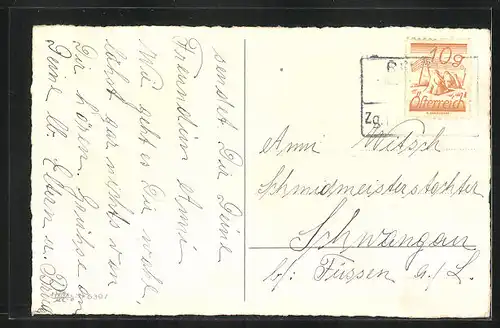 sendet Dir Deine
Freundin Anni
Wie geht es Dir wohl,
lässt gar nichts von
Dir hören. Grüsse an
Deine lb. Eltern u.
10g
Österreich
Zg
Anni Witsch
Schmidmeisterstochter
Schwangau
b/ Füssen a/L.